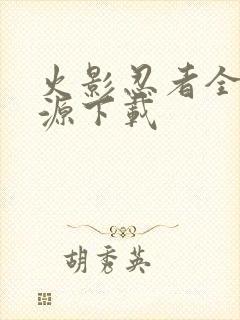 火影忍者全
源下载
胡秀英